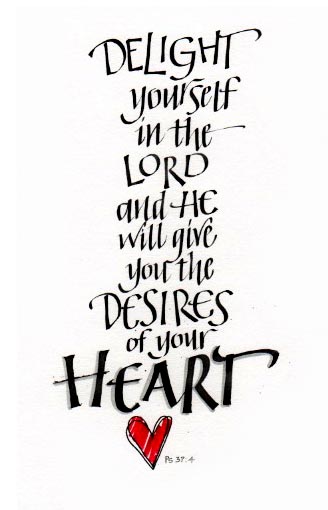 DELIGHT
yourself
in the
LORD
and HE
will give
you the
DESIRES
of your
HEART
Ps 37:4